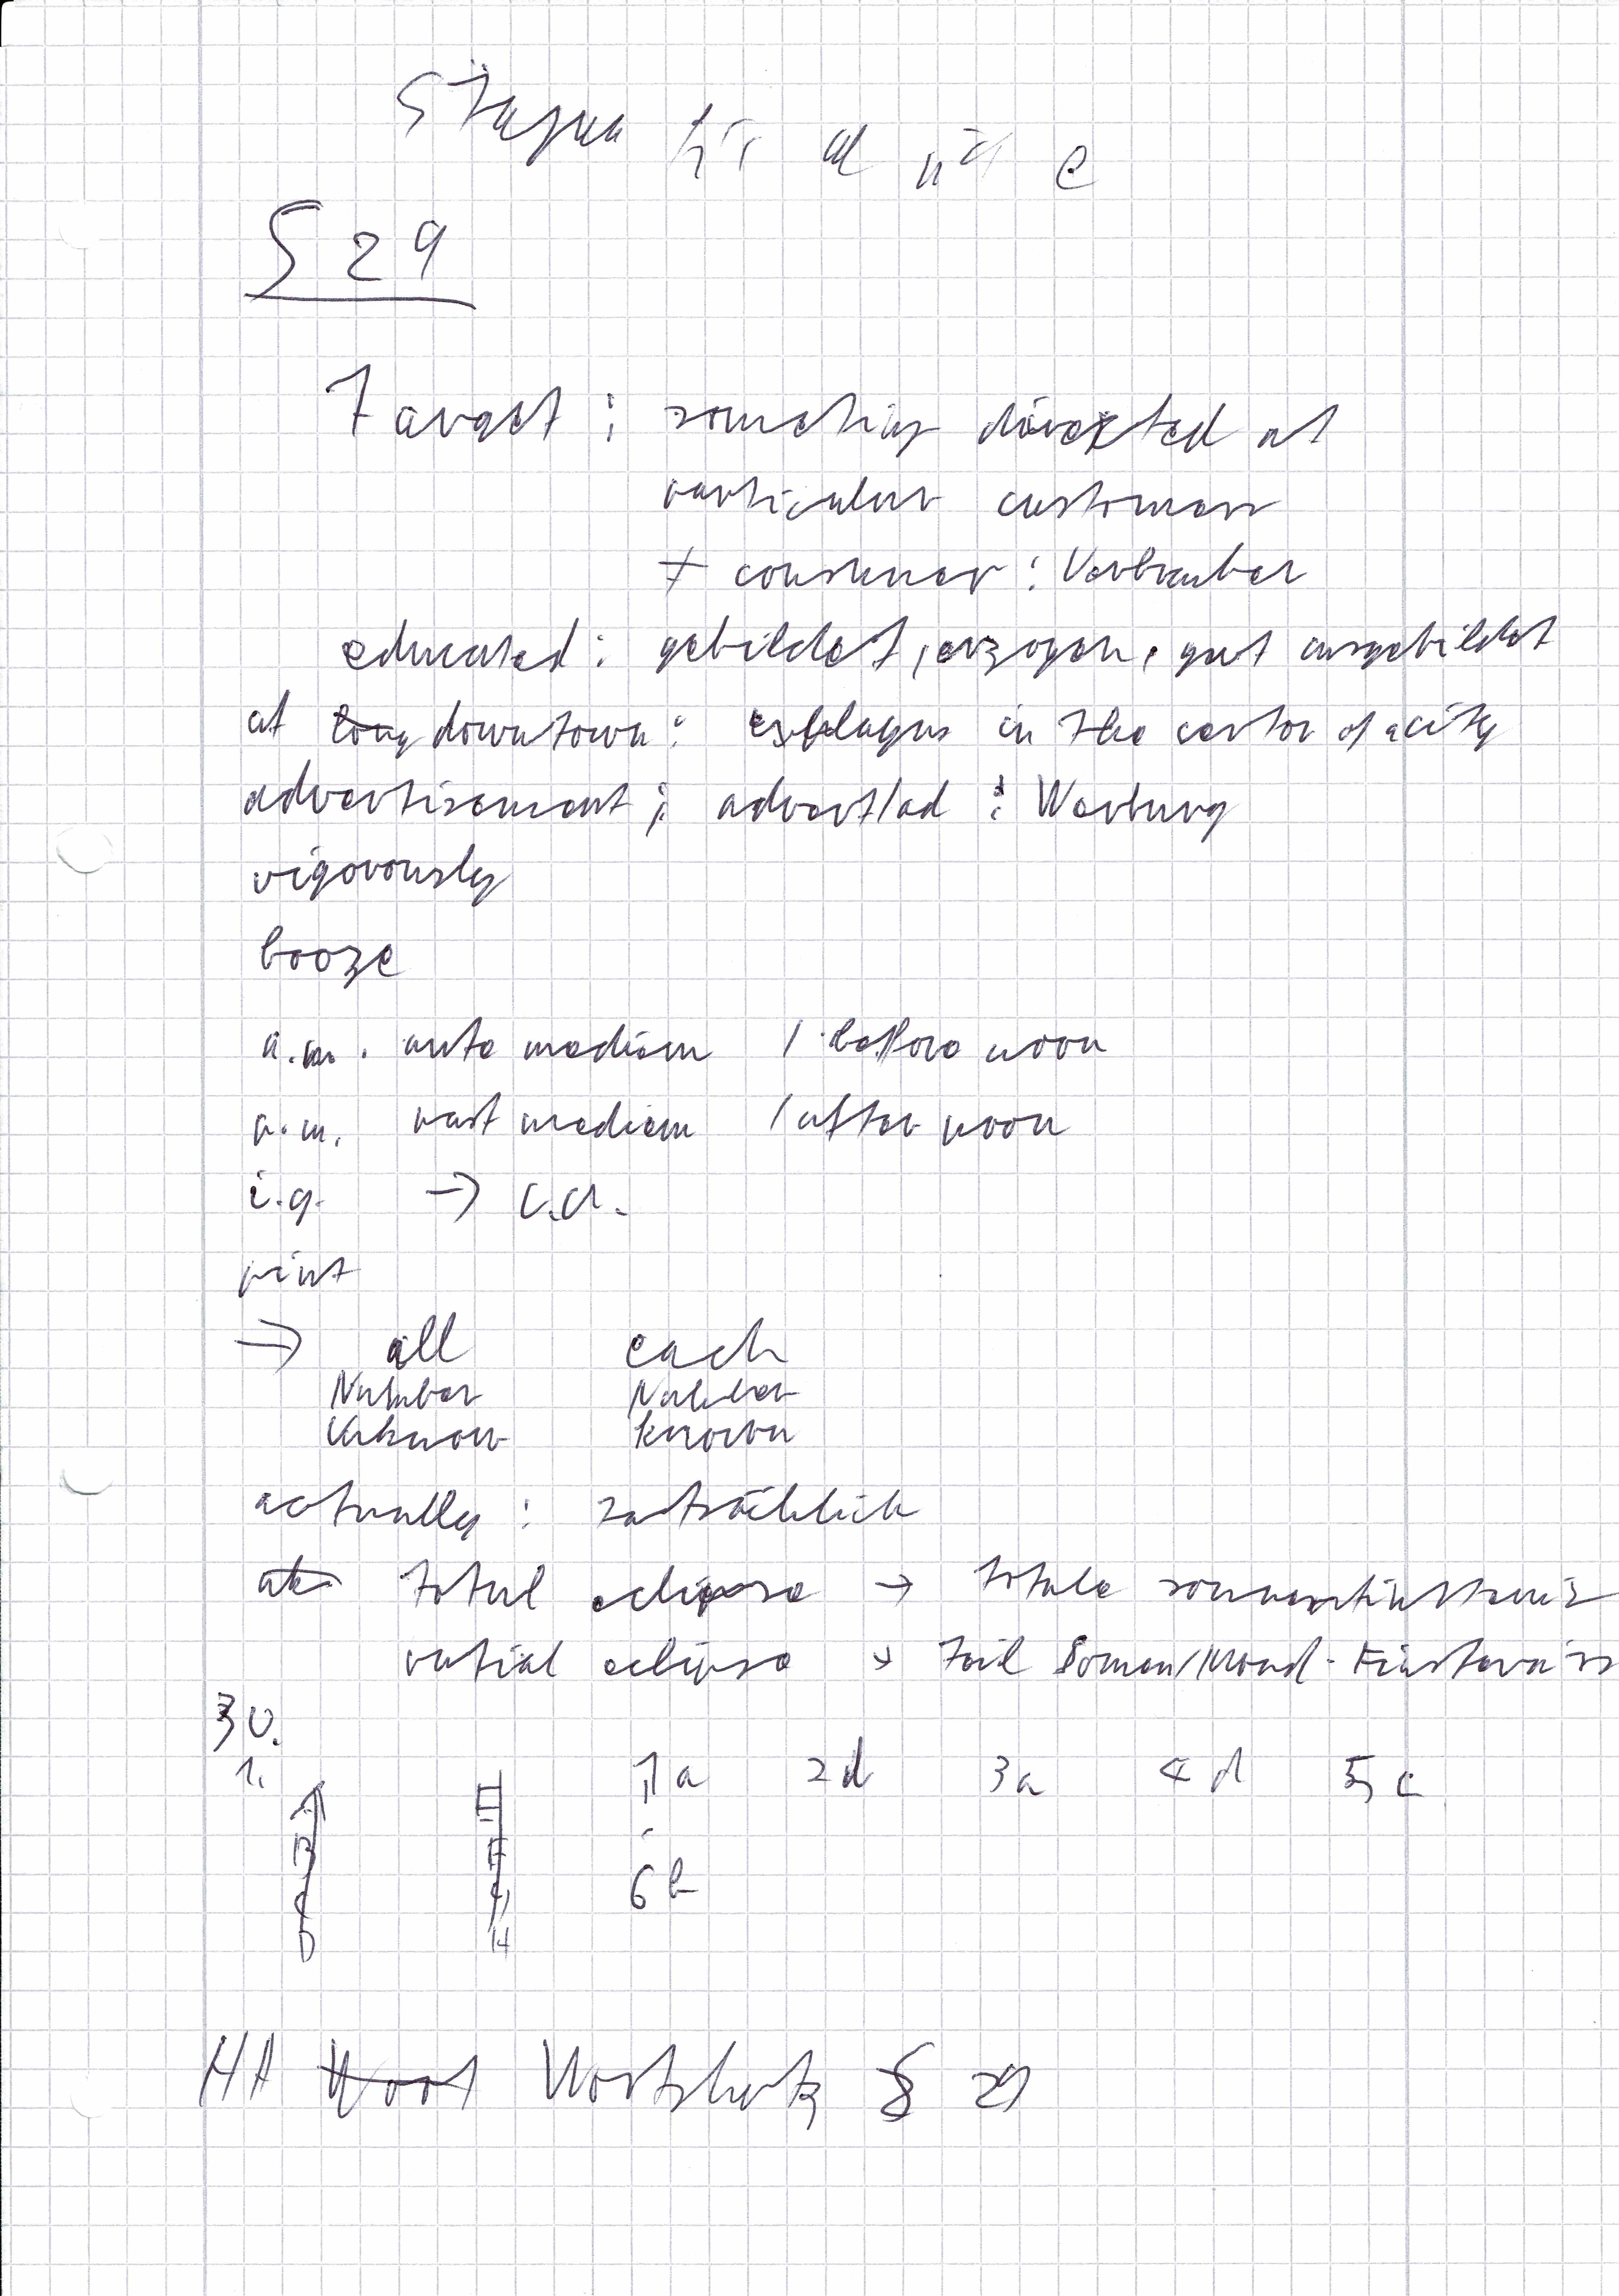 S 29
Target : something directed at
particular customers
≠ consumer : Verbraucher
educated : gebildet, erzogen, gut ausgebildet
at downtown : in the center of a city
advertisement ; advert/ad : Werbung
vigorously
booze
a.m. ante mediem / before noon
p.m. post mediem / after noon
i.g. →
pint
→ all each
Number Number
Unknown known
actually : tatsächlich
total eclipse → totale sonnenfinsternis
partial eclipse → Teil Sonnen/Mond-Finsternis
30.
1. A E 1a 2d 3a 4d 5c
B F
C G 6b
D H
HA Wortschatz S 29